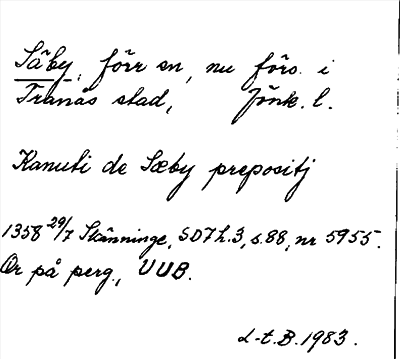 Säby, förr sn, nu förs. i
Tranås stad, Jönk. l.
Kanuti de Sæby prepositj
1358 29/7 Skänninge, SD7h.3, s.88, nr 5955.
Or på perg., UUB.
L-t.B.1983.